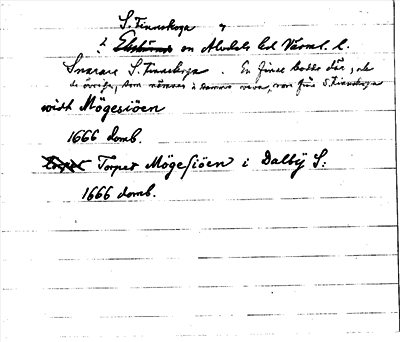 S. Finnskoga
? Ekshärads sn Älvdals hd Värml. l.
Snarare S. Finnskoga. En finne bodde där, och
de övriga, som nämnas i samma, voro från S. Finnskoga
widh Mögesiöen
1666 domb.
Torpet Mögesiöen i Dalbÿ S:
1666 domb.